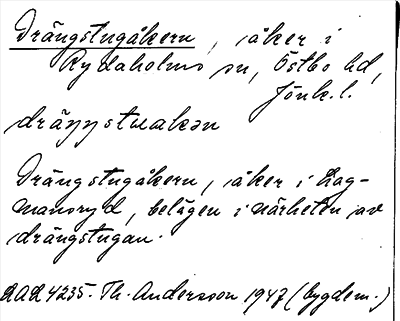 Drängstugåkern, åker i
Rydaholms sn, Östbo hd,
Jönk. l.
dräŋŋstuakən
Drängstugåkern, åker i Lag-
mansryd, belägen i närheten av
drängstugan.
4235. Th. Andersson 1947 (bygdem.)